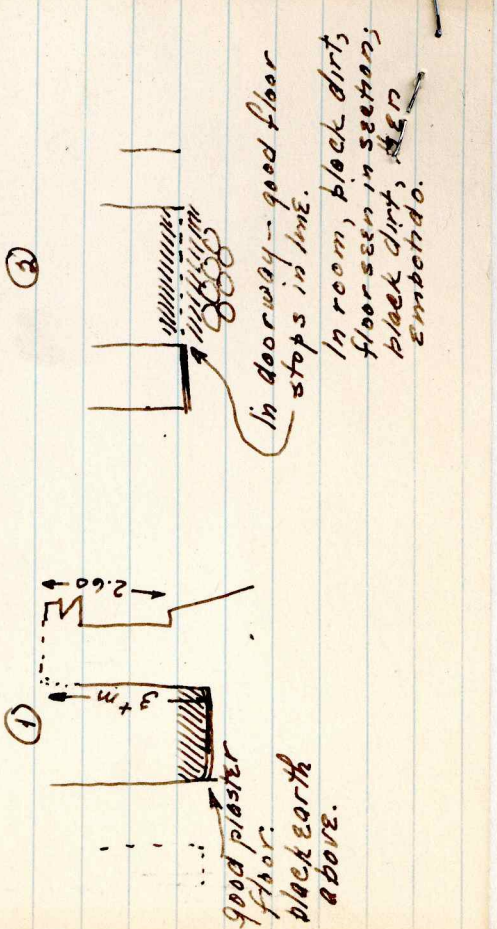 ①
2.60
3 + m
good plaster
floor.
black earth
above.
②
in doorway - good floor
stops in line.
In room, black dirt,
floor seen in section,
black dirt, then
embonado.